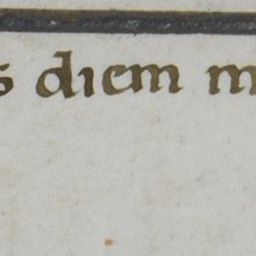 s diem m